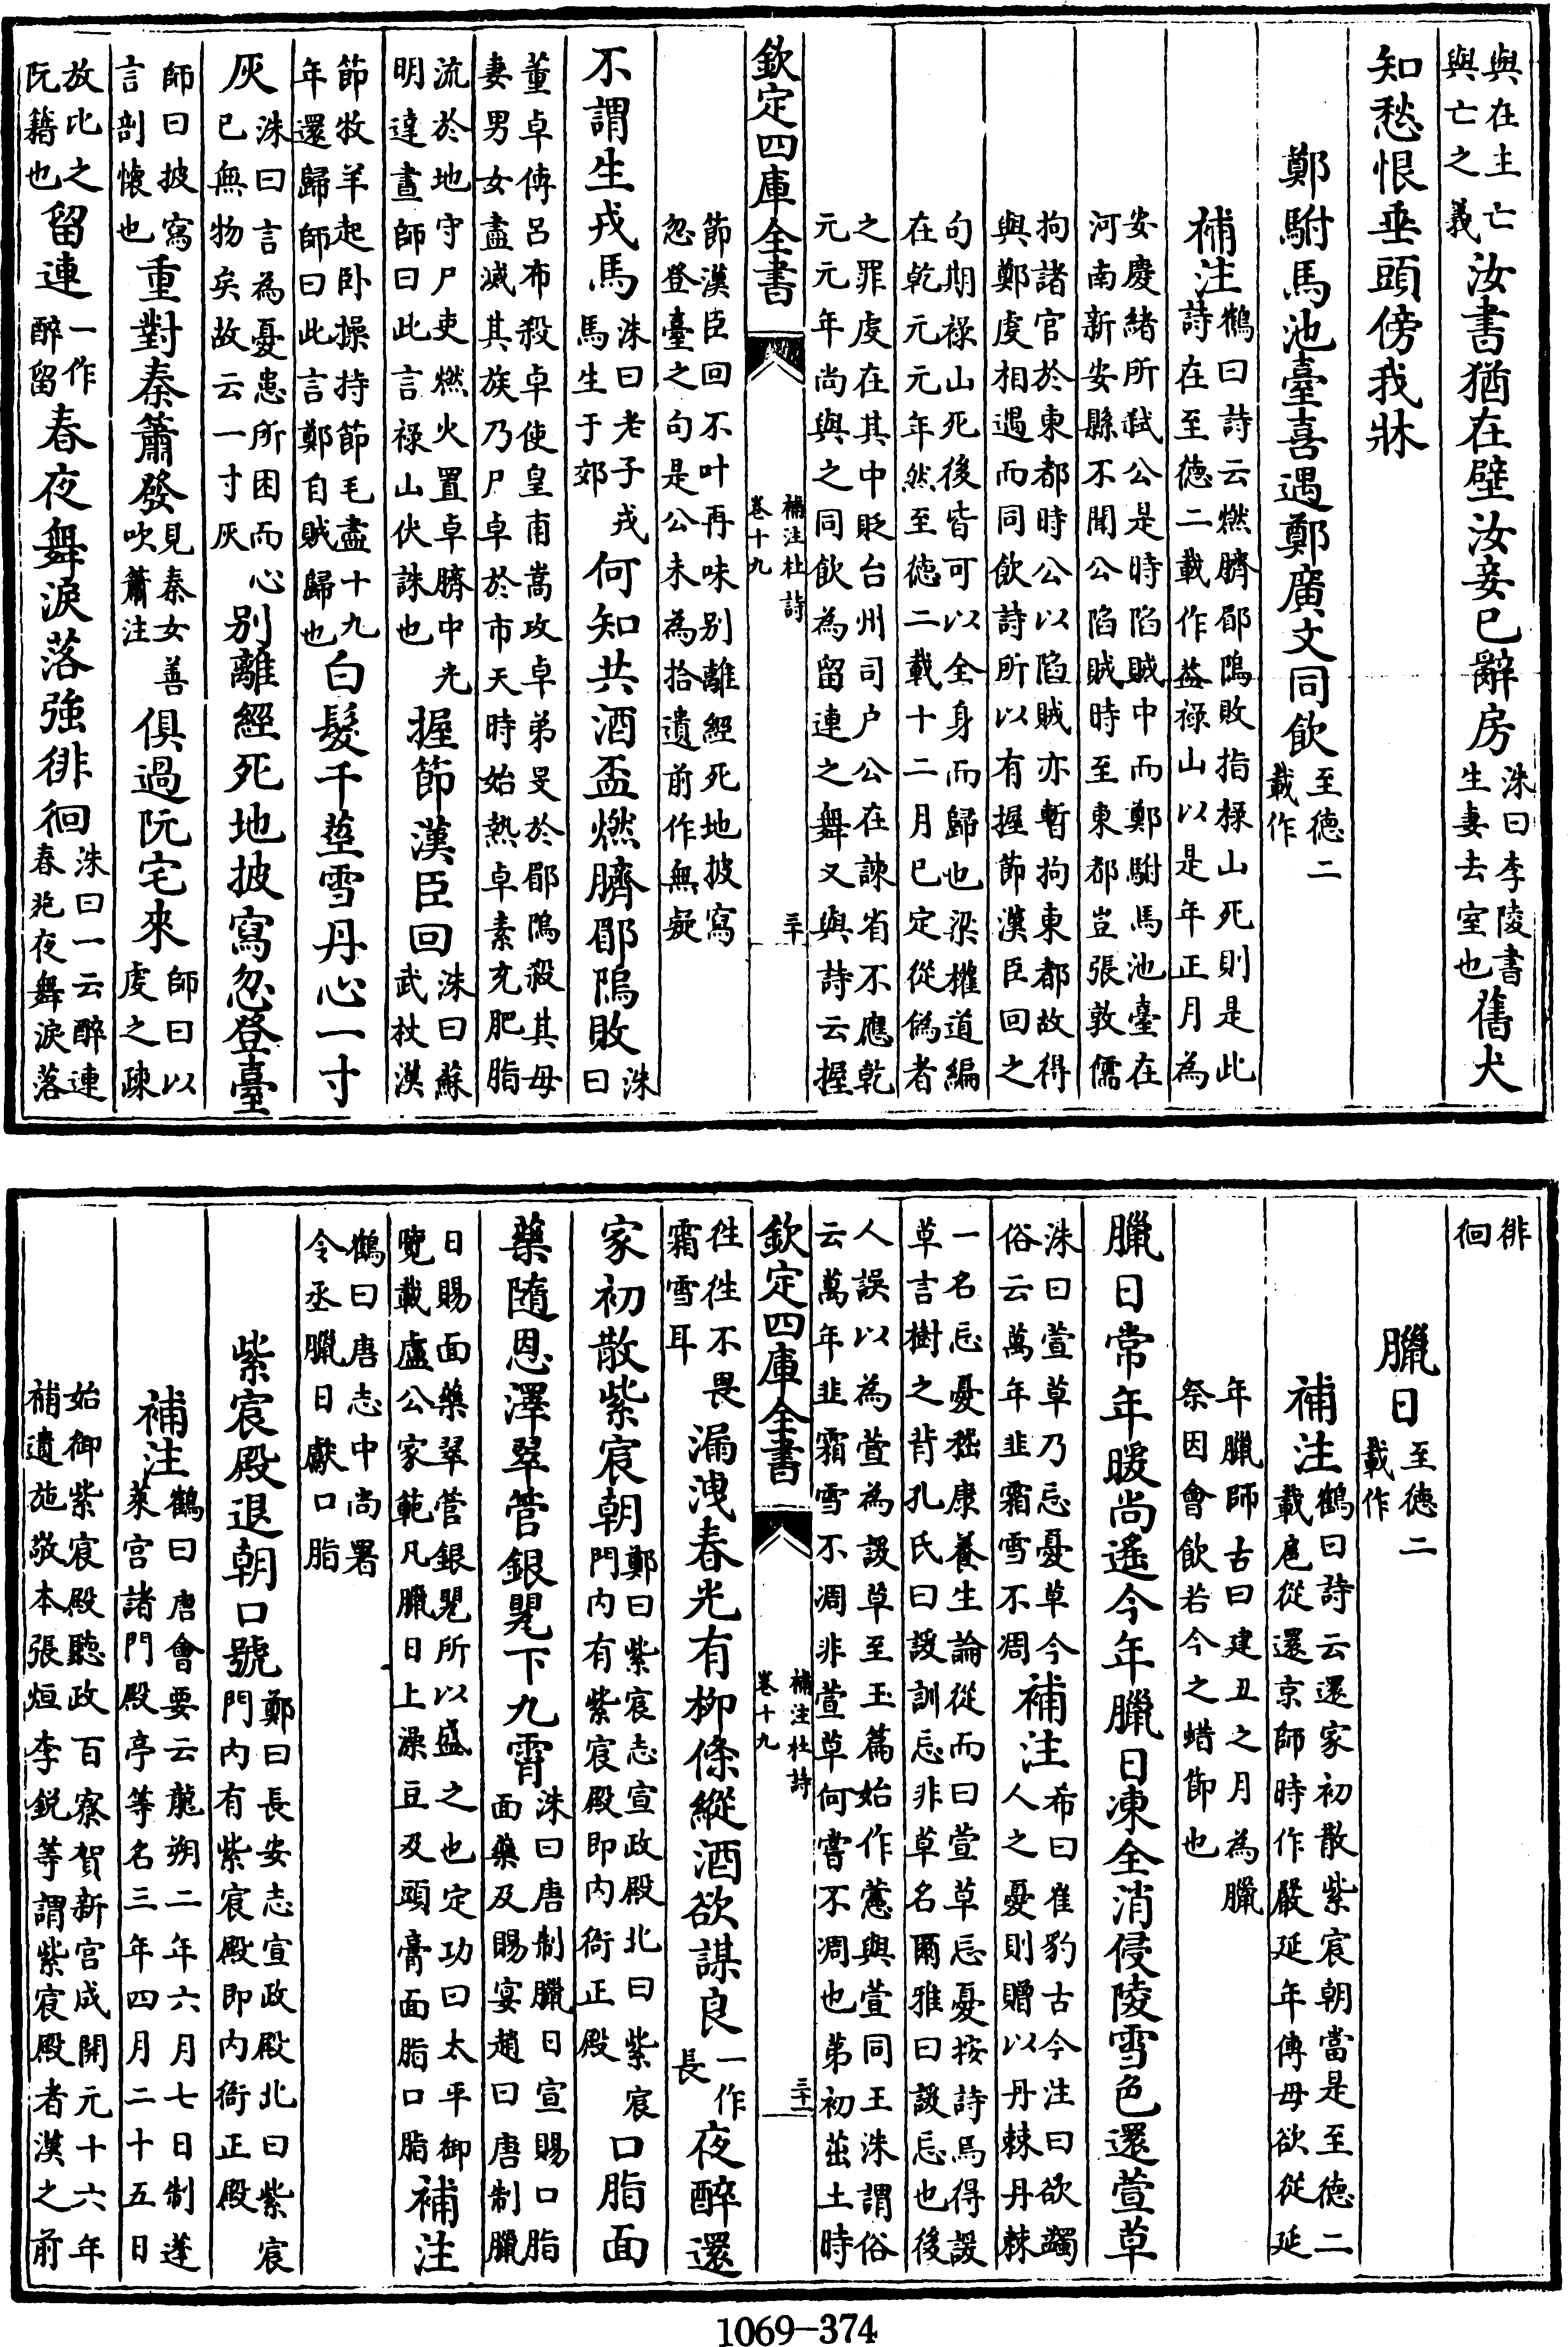 與在主亡
與亡之義
汝書猶在壁汝妾已辭房
洙曰李陵書
生妻去室也
舊犬
知愁恨垂頭傍我牀
鄭駙馬池臺喜遇鄭廣文同飲
至德二
載作
補注
鶴曰詩云燃臍郿塢敗指祿山死則是此
詩在至德二載作盖祿山以是年正月為
安慶緒所弑公是時陷賊中而鄭駙馬池臺在
河南新安縣不聞公陷賊時至東都豈張敦儒
拘諸官於東都時公以陷賊亦暫拘東都故得
與鄭虔相遇而同飲詩所以有握節漢臣回之
句期祿山死後皆可以全身而歸也梁權道編
在乾元元年然至德二載十二月已定從偽者
之罪虔在其中貶台州司户公在諫省不應乾
元元年尚與之同飲為留連之舞又與詩云握
欽定四庫全書
補注杜詩
卷十九
三十
節漢臣回不叶再味别離經死地披寫
忽登臺之句是公未為拾遺前作無疑
不謂生戎馬
洙曰老子戎
馬生于郊
何知共酒盃燃臍郿塢敗
洙
曰
董卓傳呂布殺卓使皇甫嵩攻卓弟旻於郿塢殺其母
妻男女盡滅其族乃尸卓於市天時始熱卓素充肥脂
流於地守尸吏燃火置卓臍中光
明達晝師曰此言祿山伏誅也
握節漢臣回
洙曰蘇
武杖漢
節牧羊起卧操持節毛盡十九
年還歸師曰此言鄭自賊歸也
白髮千莖雪丹心一寸
灰
洙曰言為憂患所困而心
已無物矣故云一寸灰
别離經死地披寫忽登臺
師曰披寫
言剖懷也
重對秦簫發
見秦女善
吹簫注
俱過阮宅來
師曰以
虔之疎
放比之
阮籍也
留連
一作
醉留
春夜舞淚落強徘徊
洙曰一云醉連
春苑夜舞淚落
徘
徊
臘日
至德二
載作
補注
鶴曰詩云還家初散紫宸朝當是至德二
載扈從還京師時作嚴延年傳母欲從延
年臘師古曰建丑之月為臘
祭因會飲若今之蜡節也
臘日常年暖尚遙今年臘日凍全消侵陵雪色還萱草
洙曰萱草乃忘憂草今
俗云萬年韭霜雪不凋
補注
希曰崔豹古今注曰欲蠲
人之憂則贈以丹棘丹棘
一名忘憂嵇康養生論從而曰萱草忘憂按詩焉得諼
草言樹之背孔氏曰諼訓忘非草名爾雅曰諼忘也後
人誤以為萱為諼草至玉篇始作藼與萱同王洙謂俗
云萬年韭霜雪不凋非萱草何嘗不凋也弟初茁土時
欽定四庫全書
補注杜詩
卷十九
三十一
徃徃不畏
霜雪耳
漏洩春光有柳條縱酒欲謀良
一作
長
夜醉還
家初散紫宸朝
鄭曰紫宸志宣政殿北曰紫宸
門内有紫宸殿即内衙正殿
口脂面
藥隨恩澤翠管銀甖下九霄
洙曰唐制臘日宣賜口脂
面藥及賜宴趙曰唐制臘
日賜面藥翠管銀甖所以盛之也定功曰太平御
覽載盧公家範凡臘日上澡豆及頭膏面脂口脂
補注
鶴曰唐志中尚署
令丞臘日獻口脂
紫宸殿退朝口號
鄭曰長安志宣政殿北曰紫宸
門門内有紫宸殿即内衙正殿
補注
鶴曰唐會要云龍朔二年六月七日制蓬
萊宫諸門殿亭等名三年四月二十五日
始御紫宸殿聽政百寮賀新宫成開元十六年
補遺施敬本張烜李銳等謂紫宸殿者漢之前
1069—374